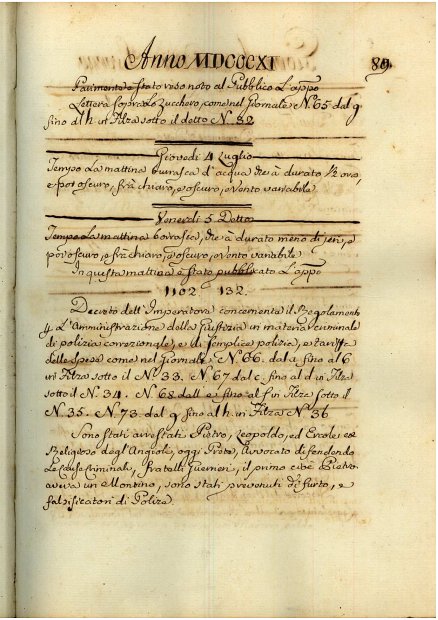 Anno MDCCCXI 89.
Parimente è stato reso noto al Pubblico L'appo
Lettera sopra Lo Zucchero, come nel Giornale, N. 65 dal g
fino al h in Filza sotto il detto N. 32
Giovedì 4 Luglio
Tempo La mattina burasca d'acqua che à durato ½ ora,
e poi oscuro, frà chiaro, e oscuro, e Vento variabile
Venerdì 5. Detto
Tempo La mattina borasca, che à durato meno di jeri, e
poi oscuro, e frà chiaro, e oscuro, e Vento variabile
In questa mattina è stato pubblicato L'appo
1102. 132.
Decreto dell'Imperatore concernente il Regolamento
p L'Amministrazione della Giustizia in materia criminale
di polizia correzionale, e di semplice polizia, e tariffa
delle spese come nel Giornale, N. 66. dal a fino al 6
in Filza sotto il N. 33. N. 67 dal c. fino al d in Filza
sotto il N. 34. N. 68 dall e fino al f in Filza sotto il
N. 35. N. 73. dal g fino al h. in Filza N. 36
Sono stati arrestati Pietro, Leopoldo, ed Ercole, ex
Religioso degl'Angioli, oggi Prete, Avvocato difendendo
Le Cause Criminali, Fratelli il primo cioè Pietro
aveva un Montino, sono stati prevenuti di furto, e
falsificatori di Polize.